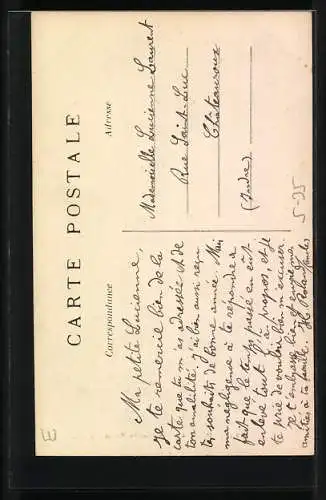 CARTE POSTALE
Correspondance
Adresse
Ma petite Lucienne,
Je te remercie bien de la
carte que tu m'as adressée et de
ton amabilité, j'ai bien aussi reçu
tes souhaits de bonne année. Mais
ma négligence à te répondre a
fait que le temps passe en eut
enlevé tout à propos, et je
te prie de vouloir bien m'excuser.
Je t'embrasse bien et exprime
amitiés à ta famille.
Mademoiselle Lucienne Laurent
Rue Saint-Luc
Châteauroux
(Indre)
5-95
E